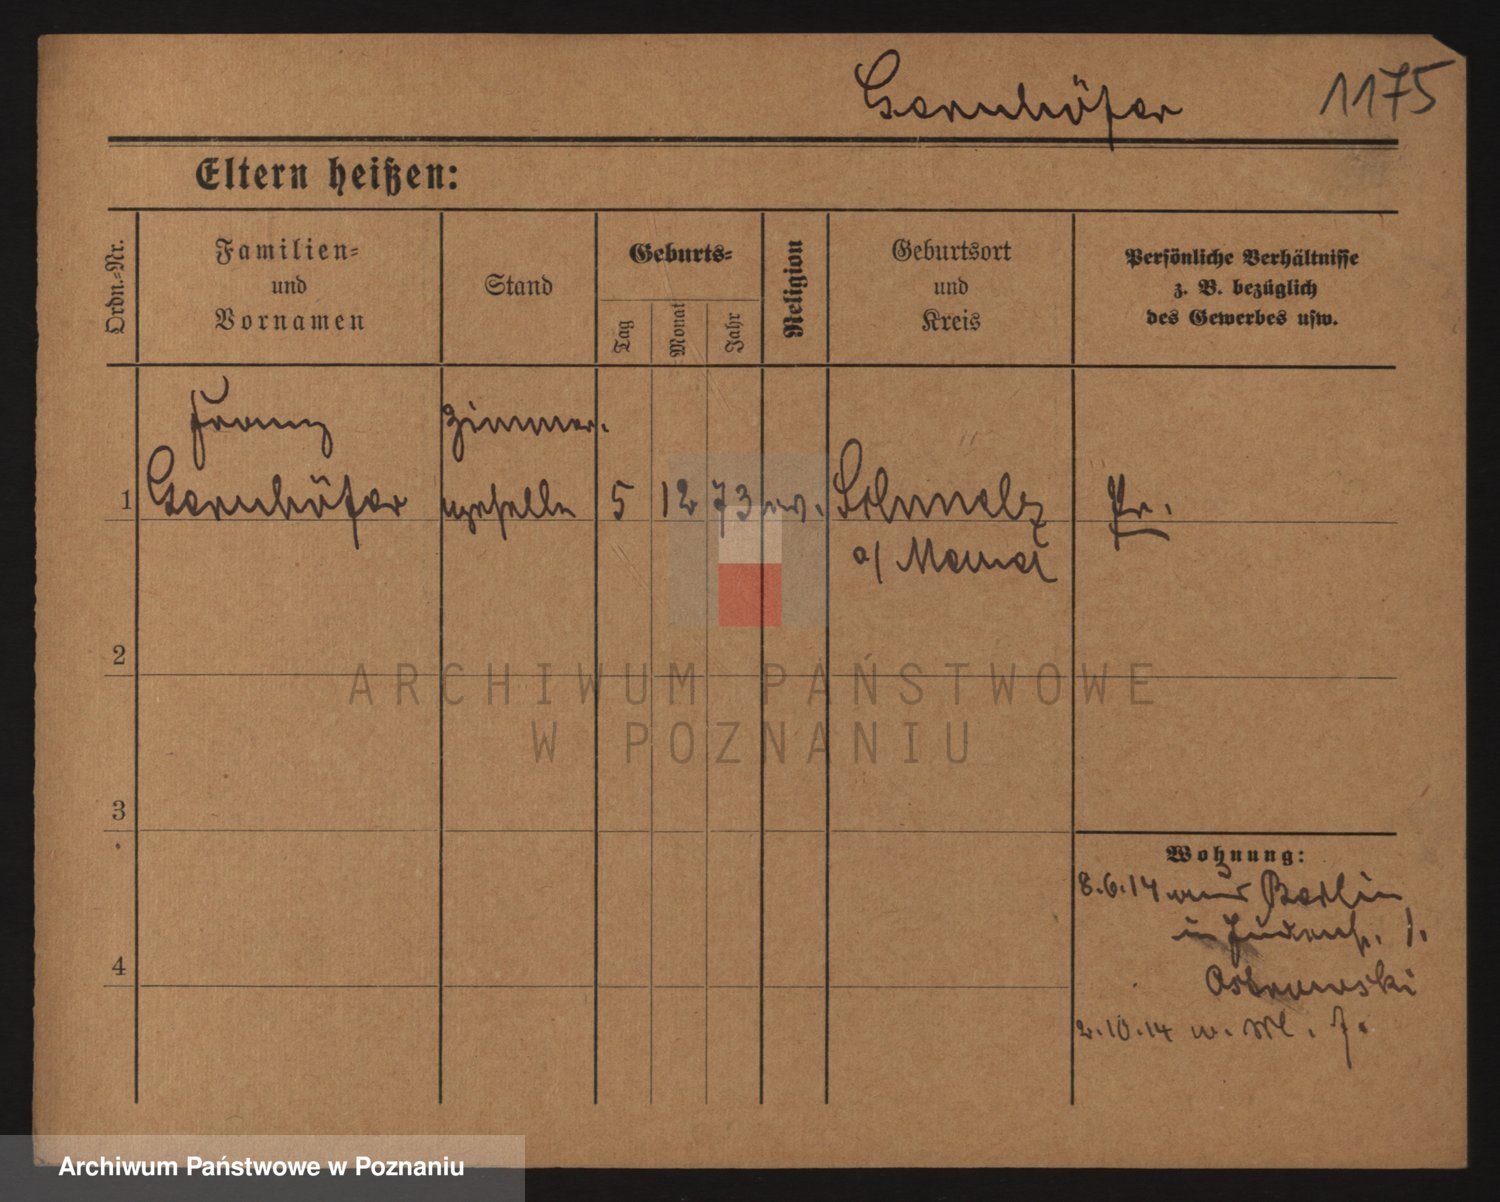 Gernhöfer 1175
Eltern heißen:
Ordn.-Nr.
Familien-
und
Vornamen
Stand
Geburts-
Tag
Monat
Jahr
Religion
Geburtsort
und
Kreis
Persönliche Verhältnisse
z. B. bezüglich
des Gewerbes usw.
Franz Zimmer-
1 Gernhöfer geselle 5 12 73 ev. Schmelz Pr.
a/ Memel
2
3
4
Wohnung:
8.6.14 aus Berlin
Ostrowski
2.10.14
ARCHIWUM PAŃSTWOWE
W POZNANIU
Archiwum Państwowe w Poznaniu